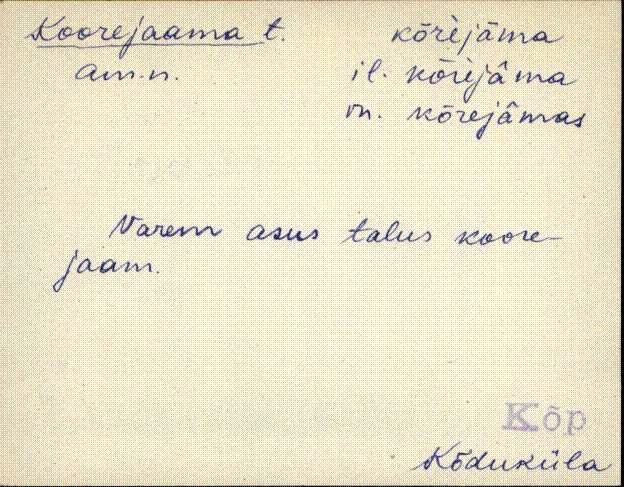 Koorejaama t. kōrèjāma
am.n. il. kōrèjâma
in. kōrejâmas
Varem asus talus koore-
jaam.
Kõp
Kõduküla